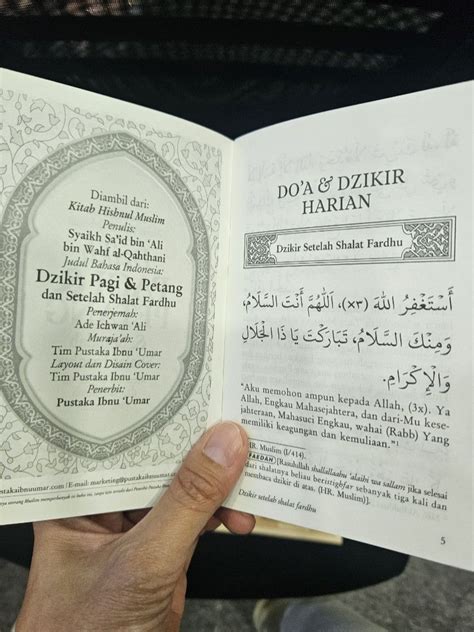 Diambil dari:
Kitab Hishnul Muslim
Penulis:
Syaikh Sa'id bin 'Ali
bin Wahf al-Qahthani
Judul Bahasa Indonesia:
Dzikir Pagi & Petang
dan Setelah Shalat Fardhu
Penerjemah:
Ade Ichwan 'Ali
Muraja'ah:
Tim Pustaka Ibnu 'Umar
Layout dan Disain Cover:
Tim Pustaka Ibnu 'Umar
Penerbit:
Pustaka Ibnu 'Umar
DO'A & DZIKIR
HARIAN
Dzikir Setelah Shalat Fardhu
أَسْتَغْفِرُ اللهَ (٣×)، اَللَّهُمَّ أَنْتَ السَّلَامُ،
وَمِنْكَ السَّلَامُ، تَبَارَكْتَ يَا ذَا الْجَلَالِ
وَالْإِكْرَامِ.
"Aku memohon ampun kepada Allah, (3x). Ya
Allah, Engkau Mahasejahtera, dan dari-Mu kese-
jahteraan, Mahasuci Engkau, wahai (Rabb) Yang
memiliki keagungan dan kemuliaan."¹
HR. Muslim (I/414).
FAEDAH [Rasulullah shallallaahu 'alaihi wa sallam jika selesai
dari shalatnya beliau beristighfar sebanyak tiga kali dan
membaca dzikir di atas. (HR. Muslim)].
Dzikir setelah shalat fardhu
5